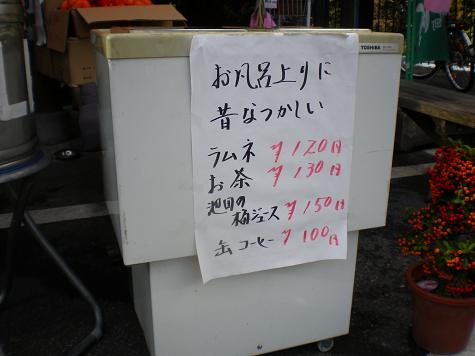 TOSHIBA
お風呂上りに
昔なつかしい
ラムネ ¥120円
お茶 ¥130円
池田の
梅ジュース ¥150円
缶コーヒー ¥100円